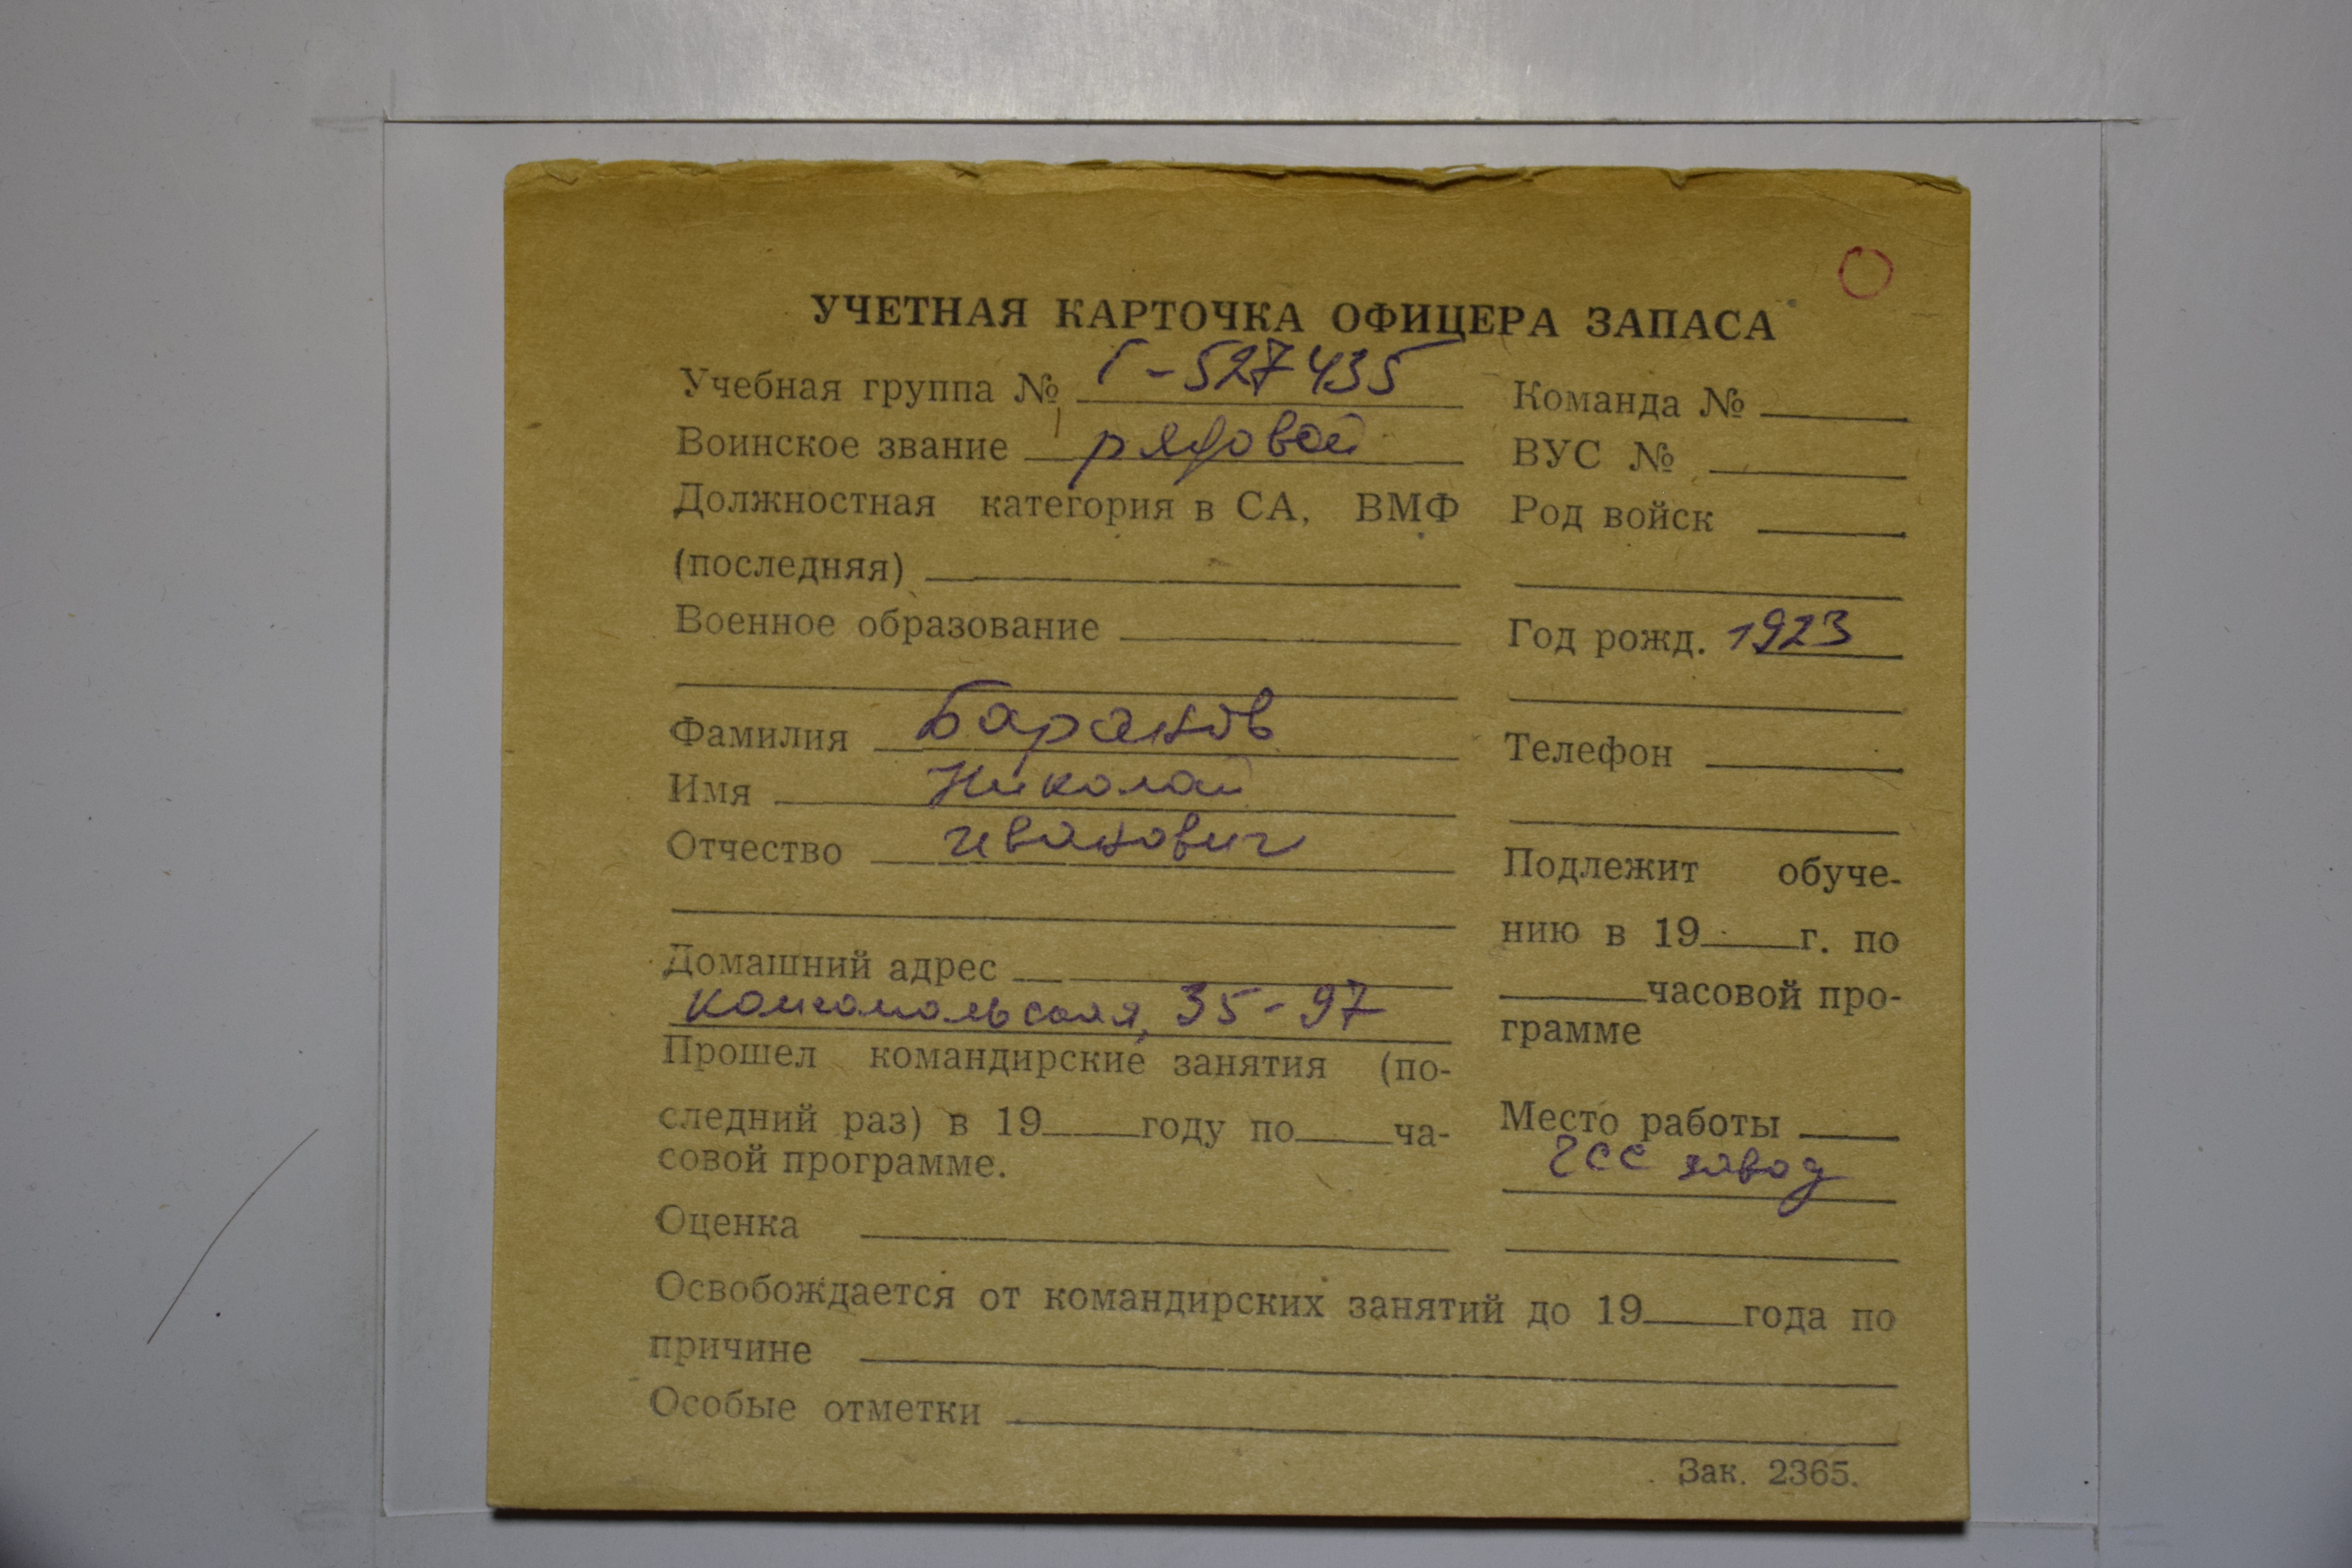 УЧЕТНАЯ КАРТОЧКА ОФИЦЕРА ЗАПАСА
Учебная группа № Г-527435
Воинское звание рядовой
Должностная категория в СА, ВМФ
(последняя)
Военное образование
Фамилия Баранов
Имя Николай
Отчество иванович
Домашний адрес
комсомольская, 35-97
Прошел командирские занятия (по-
следний раз) в 19 году по ча-
совой программе.
Оценка
Команда №
ВУС №
Род войск
Год рожд. 1923
Телефон
Подлежит обуче-
нию в 19 г. по
часовой про-
грамме
Место работы
завод
Освобождается от командирских занятий до 19 года по
причине
Особые отметки
Зак. 2365.